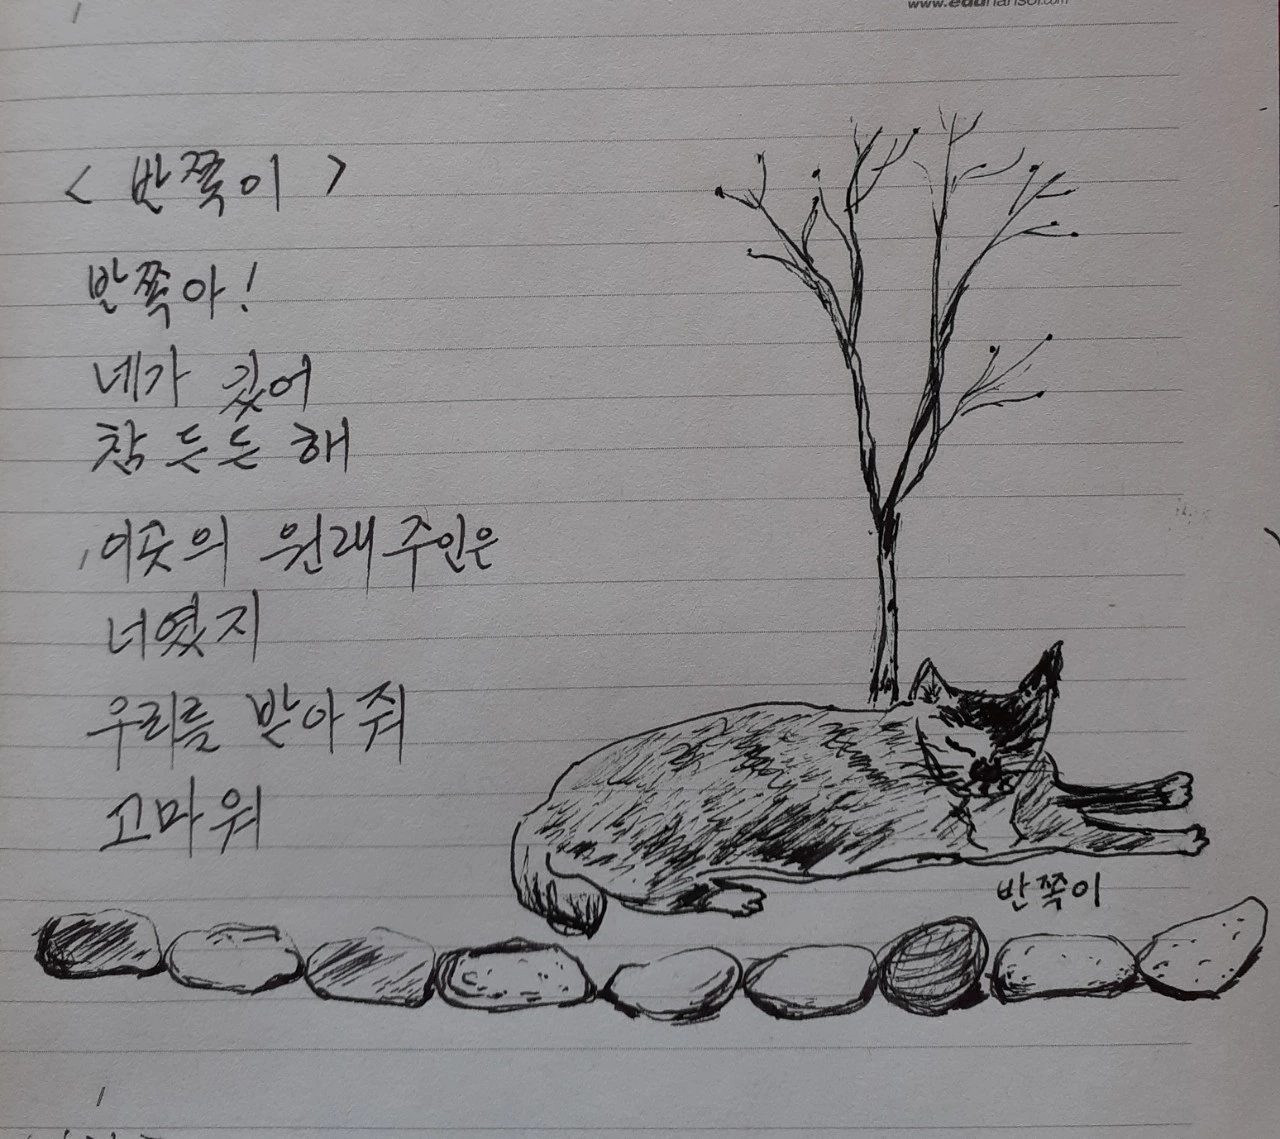 www.eduhansol.com
< 반쪽이 >
반쪽아!
네가 있어
참 든든 해
이곳의 원래 주인은
너였지
우리를 받아 줘
고마워
반쪽이